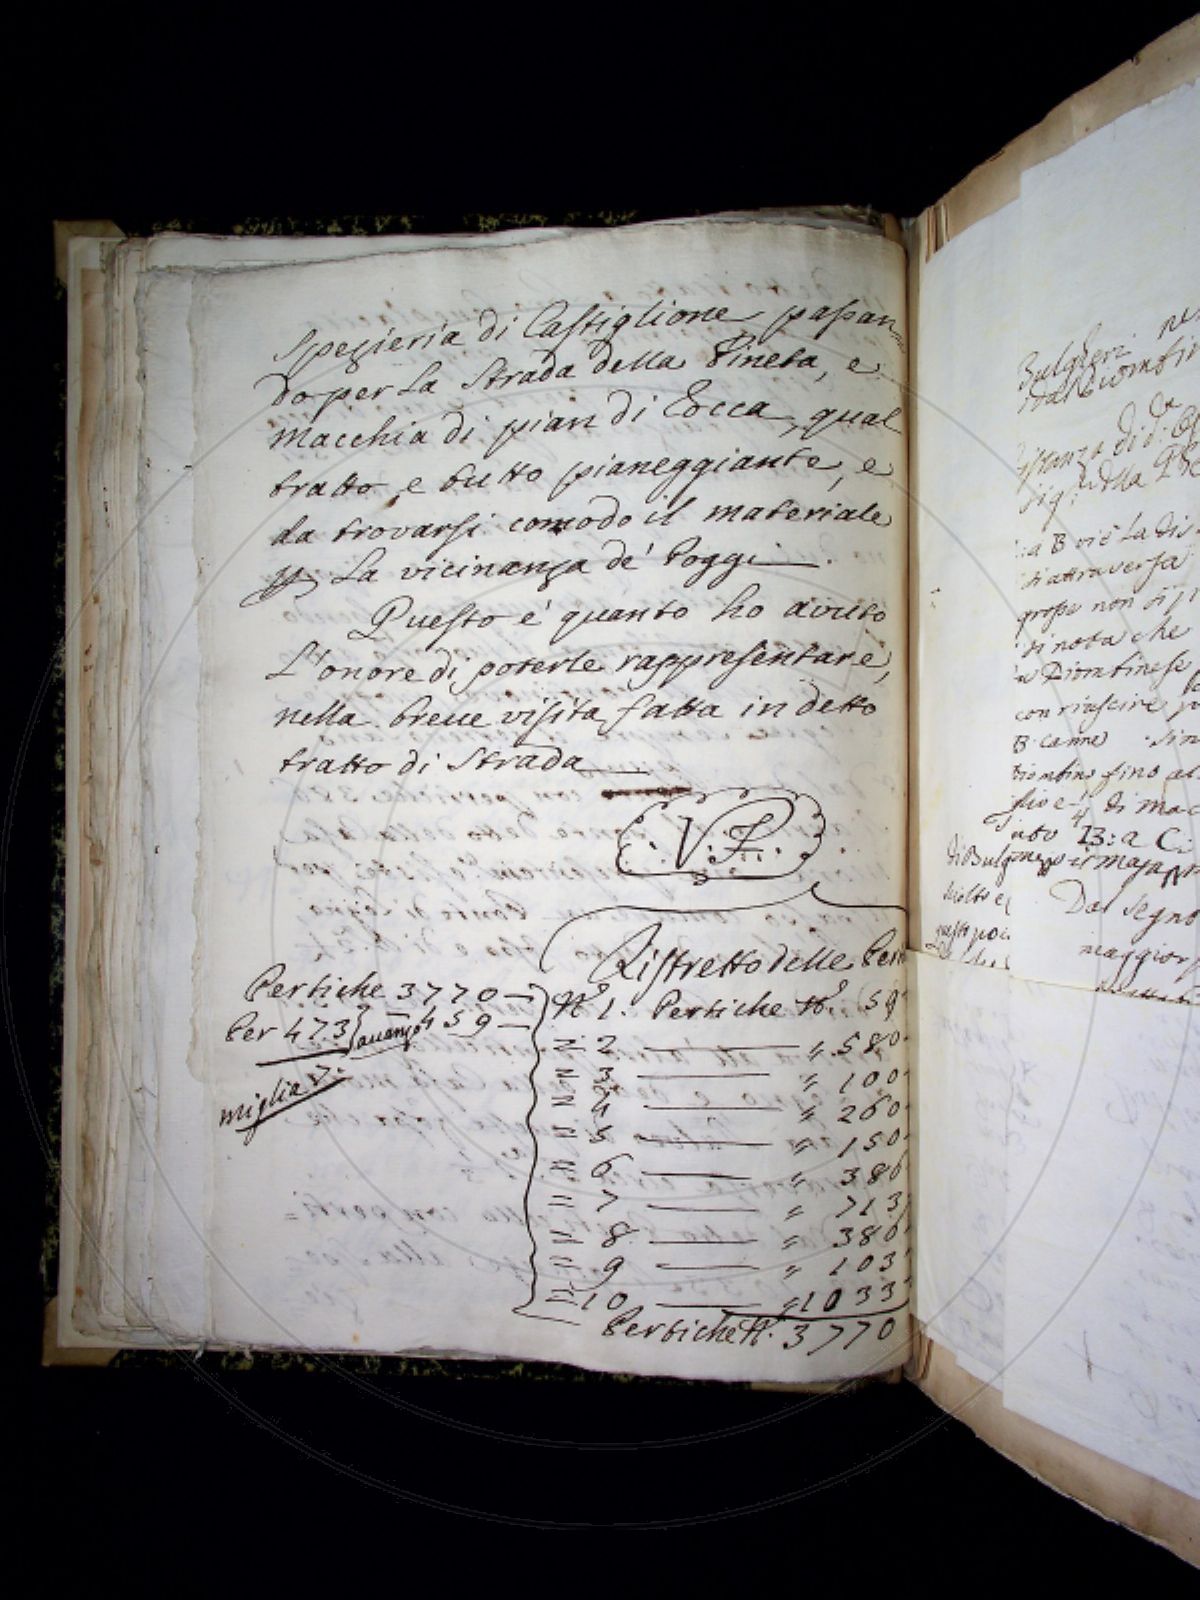 Spezieria di Castiglione passan
do per La Strada della Pineta, e
macchia di pian di Rocca, qual
tratto e tutto pianeggiante, e
da trovarsi comodo il materiale
La vicinanza de' Poggi.
Questo è quanto ho avuto
L'onore di poterle rappresentare,
nella breve visita fatta in detto
tratto di Strada
V. F.
Ristretto delle Per
N.o 1. Pertiche N.o 59
= 2 " 580
= 3 " 100
= 4 " 260
= 5 " 150
= 6 " 386
= 7 " 713
= 8 " 386
= 9 " 103
= 10 " 1033
Pertiche N. 3770
Pertiche 3770
Per 473 avanza 459
miglia 7.
Bulgheri
Distanza di d.
Sig. della
a B vi è La dis
di attraversa
non di
si nota che
Piombinese
con riuscire
B canne
Piombino fino al
di mac
B: a C
di Bulg
molto e
questo poi
Dal Segno
maggior